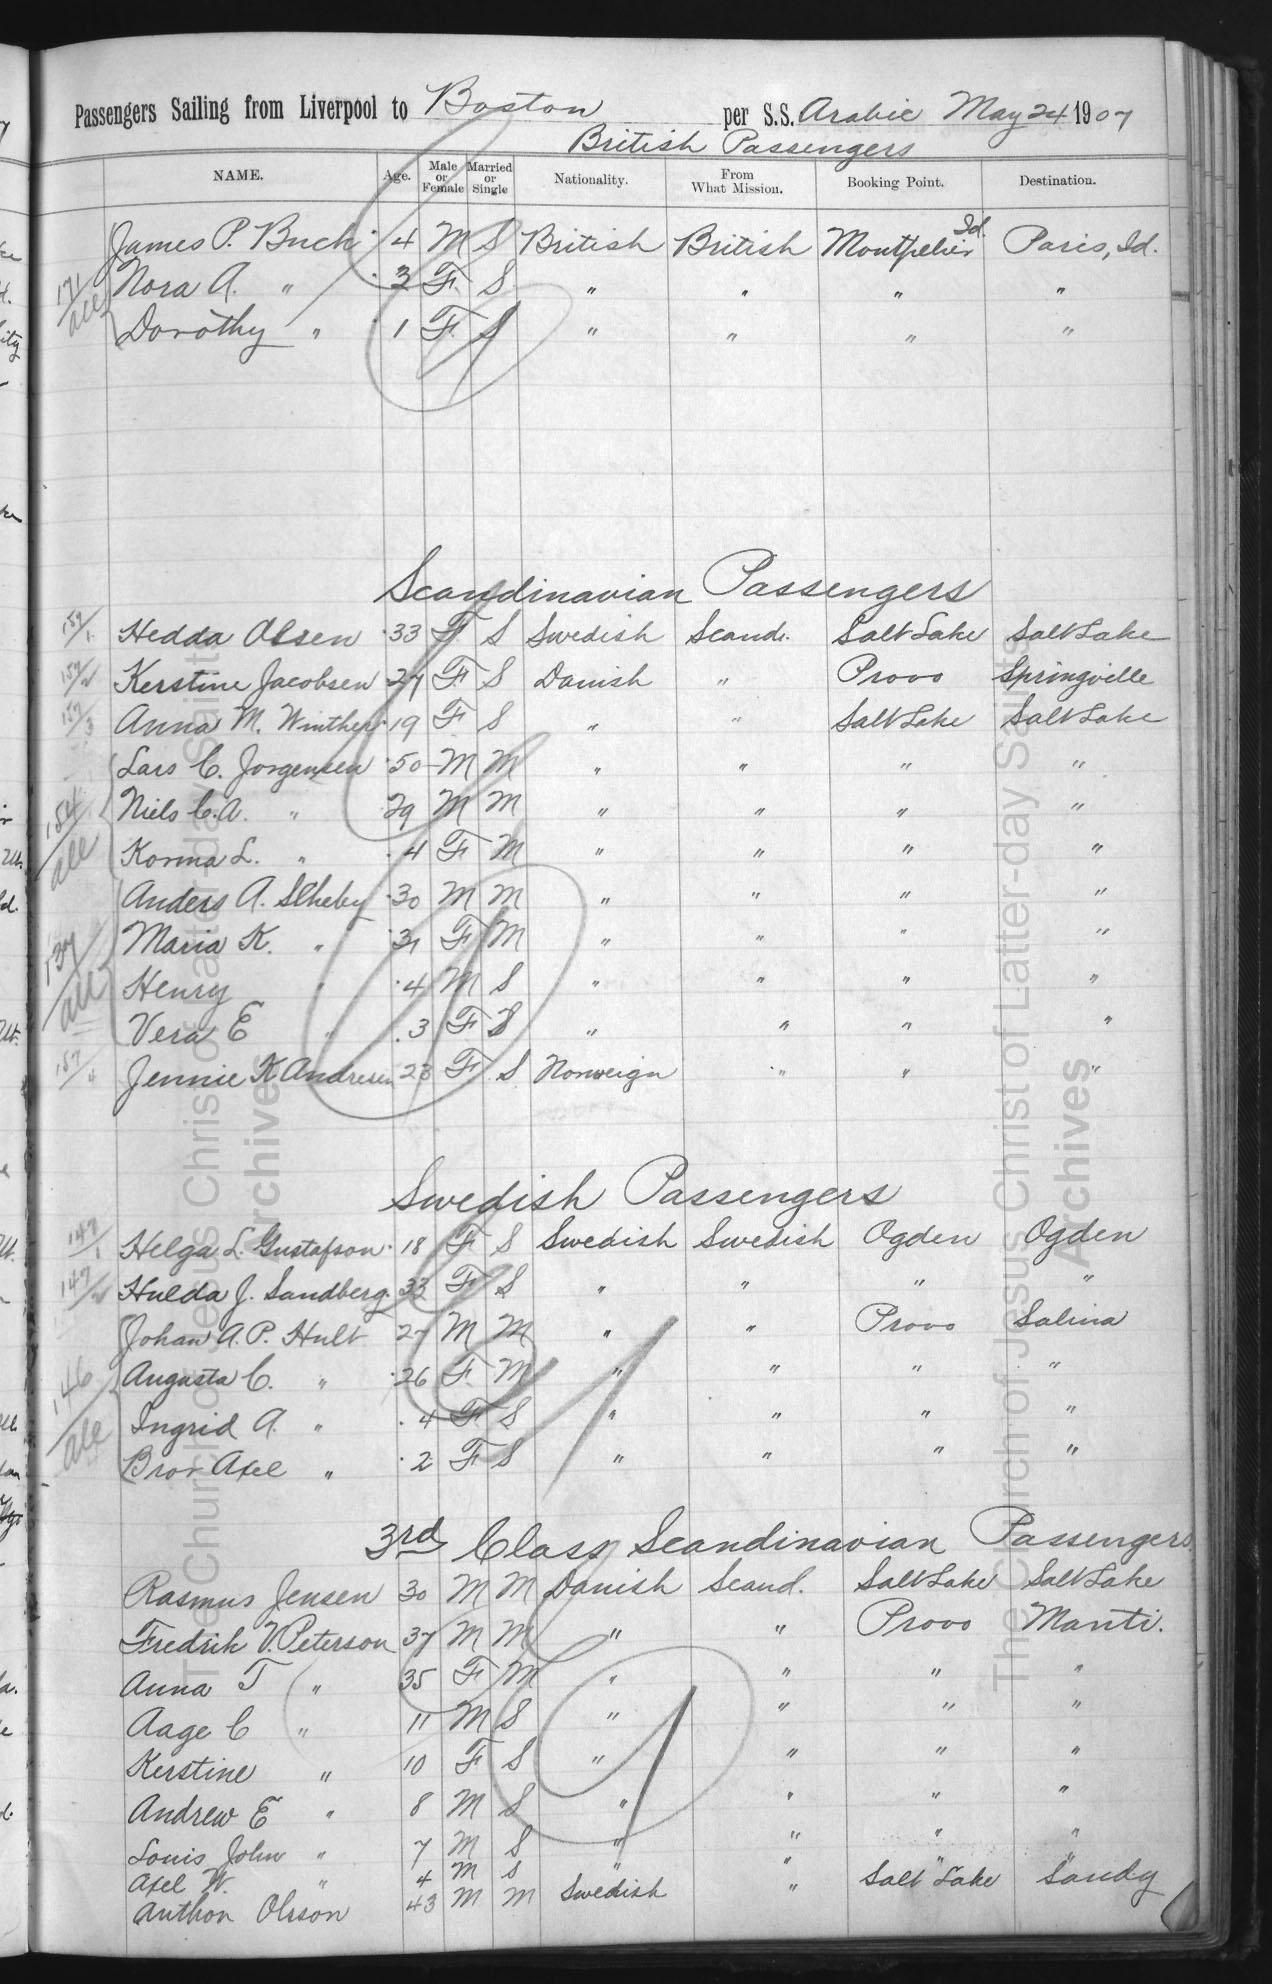 Passengers Sailing from Liverpool to Boston per S.S. Arabic May 24 1907
British Passengers
NAME. Age. Male or Female Married or Single Nationality. From What Mission. Booking Point. Destination.
James P. Buck 4 M S British British Montpelier Id. Paris, Id.
171/all
Nora A. " 3 F S " " " "
Dorothy " 1 F S " " " "
Scandinavian Passengers
157/1 Hedda Olsen 33 F S Swedish Scand. Salt Lake Salt Lake
157/2 Kerstine Jacobsen 27 F S Danish " Provo Springville
157/3 Anna M. Winther 19 F S " " Salt Lake Salt Lake
Lars C. Jorgensen 50 M M " " " "
154/all Niels C. A. " 29 M M " " " "
Korma L. " 4 F M " " " "
Anders A. 30 M M " " " "
137/all Maria K. " 31 F M " " " "
Henry " 4 M S " " " "
Vera E " 3 F S " " " "
157/4 Jennie K Andresen 23 F S Norweign " " "
Swedish Passengers
147/1 Helga L. Gustafson 18 F S Swedish Swedish Ogden Ogden
147/2 Hulda J. Sandberg 33 F S " " " "
Johan A. P. Hult 27 M M " " Provo Salina
146/all Augusta C. " 26 F M " " " "
Ingrid A. " 4 F S " " " "
Bror Axel " 2 F S " " " "
3rd Class Scandinavian Passengers
Rasmus Jensen 30 M M Danish Scand. Salt Lake Salt Lake
Fredrik V. Peterson 37 M M " " Provo Manti.
Anna T " 35 F M " " " "
Aage C " 11 M S " " " "
Kerstine " 10 F S " " " "
Andrew E " 8 M S " " " "
Louis John " 7 M S " " " "
Axel W. " 4 M S " " " "
Anthon Olsson 43 M M Swedish " Salt Lake Sandy
The Church of Jesus Christ of Latter-day Saints
Archives
The Church of Jesus Christ of Latter-day Saints
Archives